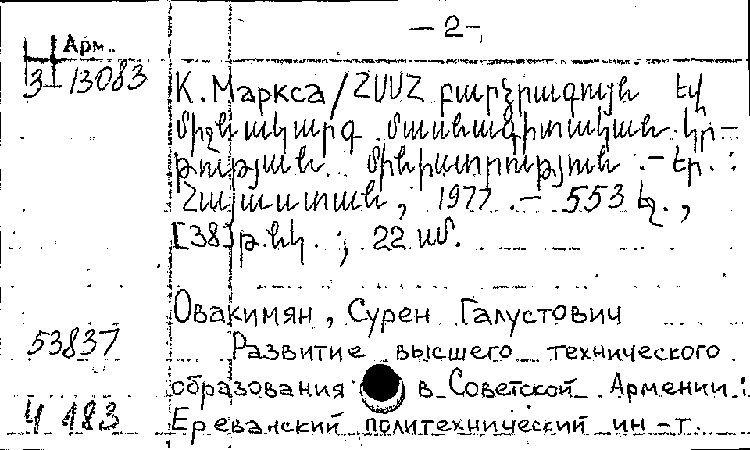 — 2 —
Арм.
3-13083
К. Маркса / ՀՍՍՀ բարձրագույն եվ
միջնակարգ մասնագիտական կր-
թության մինիստրություն . — Եր. :
Հայաստան, 1977 . — 553 էջ.,
[38] թ. նկ. ; 22 սմ.
Овакимян, Сурен Галустович
53837
Развитие высшего технического
образования в Советской Армении :
4 483
Ереванский политехнический ин-т.